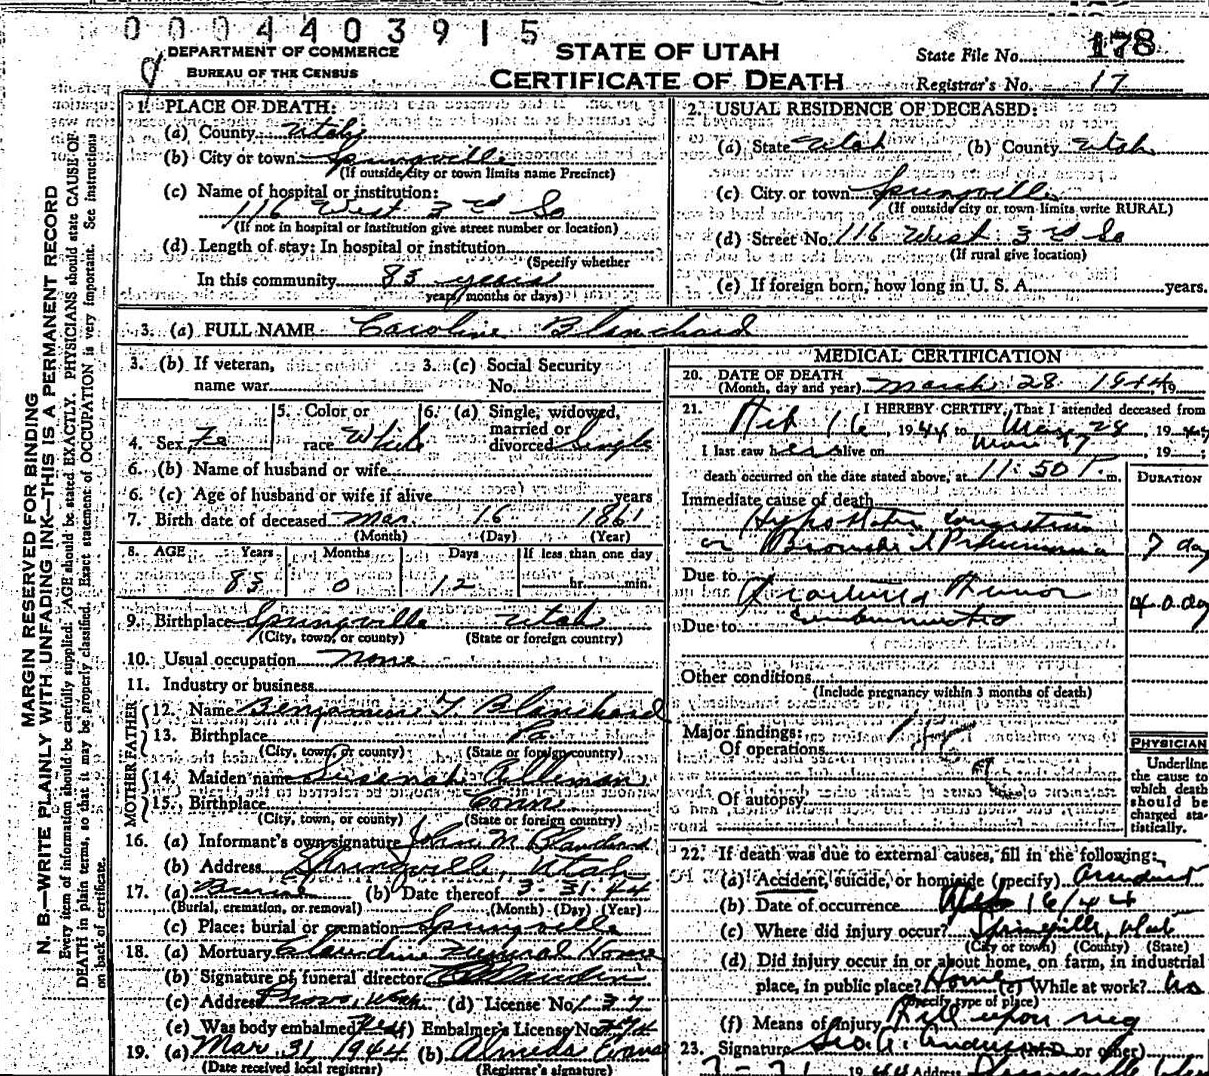 0004403915
DEPARTMENT OF COMMERCE
BUREAU OF THE CENSUS
STATE OF UTAH
CERTIFICATE OF DEATH
State File No. 178
Registrar's No. 17
MARGIN RESERVED FOR BINDING
N. B.—WRITE PLAINLY WITH UNFADING INK—THIS IS A PERMANENT RECORD
Every item of information should be carefully supplied. AGE should be stated EXACTLY. PHYSICIANS should state CAUSE OF
DEATH in plain terms, so that it may be properly classified. Exact statement of OCCUPATION is very important. See instructions
on back of certificate.
1. PLACE OF DEATH:
(a) County Utah
(b) City or town Springville
(If outside city or town limits name Precinct)
(c) Name of hospital or institution:
116 West 3rd So
(If not in hospital or institution give street number or location)
(d) Length of stay: In hospital or institution
(Specify whether
In this community 83 years
years, months or days)
2. USUAL RESIDENCE OF DECEASED:
(a) State Utah (b) County Utah
(c) City or town Springville
(If outside city or town limits write RURAL)
(d) Street No. 116 West 3rd So
(If rural give location)
(e) If foreign born, how long in U. S. A. years.
3. (a) FULL NAME Caroline Blanchard
3. (b) If veteran,
name war
3. (c) Social Security
No.
4. Sex Fe
5. Color or
race White
6. (a) Single, widowed,
married or
divorced Single
6. (b) Name of husband or wife
6. (c) Age of husband or wife if alive years
7. Birth date of deceased Mar. 16 1861
(Month) (Day) (Year)
8. AGE Years Months Days If less than one day
83 0 12 hr. min.
9. Birthplace Springville Utah
(City, town, or county) (State or foreign country)
10. Usual occupation None
11. Industry or business
FATHER
12. Name Benjamin T. Blanchard
13. Birthplace Pa.
(City, town, or county) (State or foreign country)
MOTHER
14. Maiden name Susanah Alleman
15. Birthplace Conn.
(City, town, or county) (State or foreign country)
16. (a) Informant's own signature John M. Blanchard
(b) Address Springville, Utah
17. (a) Burial (b) Date thereof 3-31-44
(Burial, cremation, or removal) (Month) (Day) (Year)
(c) Place: burial or cremation Springville
18. (a) Mortuary Claudin Funeral Home
(b) Signature of funeral director
(c) Address Provo, Utah (d) License No. 137
(e) Was body embalmed Yes (f) Embalmer's License No.
19. (a) Mar 31, 1944 (b) Almeda Evans
(Date received local registrar) (Registrar's signature)
MEDICAL CERTIFICATION
20. DATE OF DEATH
(Month, day and year) March 28 1944 19
21. I HEREBY CERTIFY, That I attended deceased from
Feb 16, 1944 to Mar 28, 19
I last saw her alive on Mar 27, 19 ;
death occurred on the date stated above, at 11:50 P. m.
DURATION
Immediate cause of death
Hypostatic congestion
or Bronchial Pneumonia 7 day
Due to Fractured Femur 40 day
Due to
Other conditions
(Include pregnancy within 3 months of death)
Major findings:
Of operations
Of autopsy
PHYSICIAN
Underline
the cause to
which death
should be
charged sta-
tistically.
22. If death was due to external causes, fill in the following:
(a) Accident, suicide, or homicide (specify) Accident
(b) Date of occurrence Feb 16/44
(c) Where did injury occur? Springville, Utah
(City or town) (County) (State)
(d) Did injury occur in or about home, on farm, in industrial
place, in public place? Home (e) While at work? No
(Specify type of place)
(f) Means of injury Fell upon rug
23. Signature Geo. A. Anderson (M.D. or other)
3-31 1944 Address Springville Utah